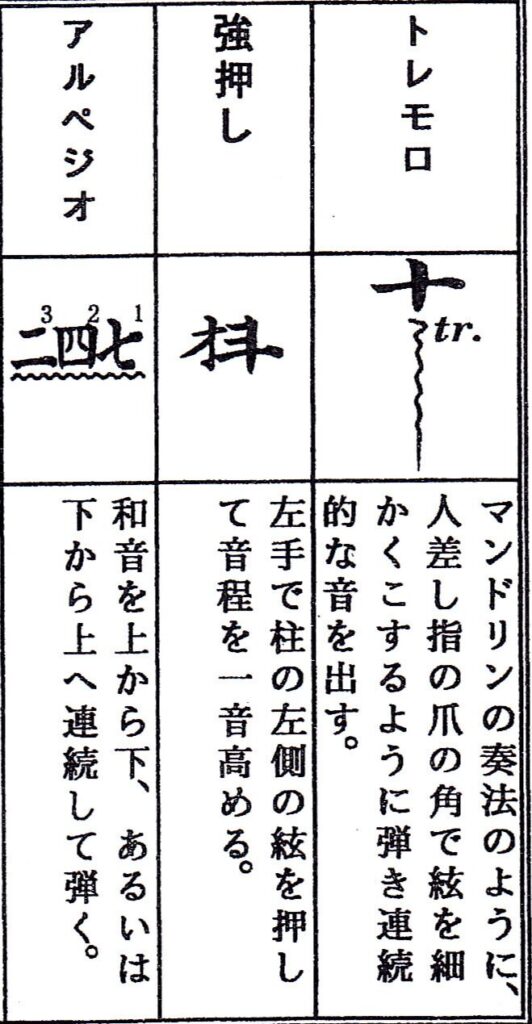 トレモロ
十
tr.
マンドリンの奏法のように、
人差し指の爪の角で絃を細
かくこするように弾き連続
的な音を出す。
強押し
左手で柱の左側の絃を押し
て音程を一音高める。
アルペジオ
二四七
3 2 1
和音を上から下、あるいは
下から上へ連続して弾く。